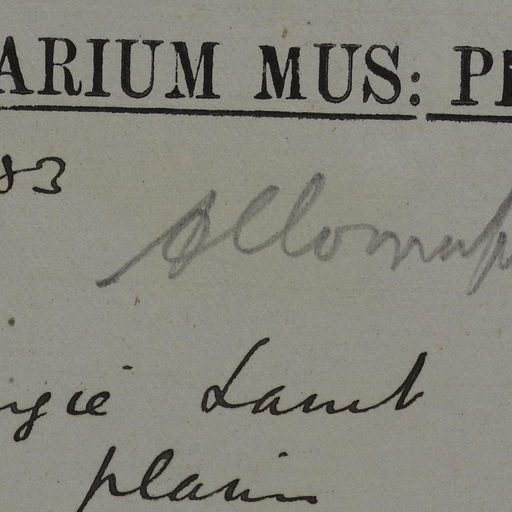 ARIUM MUS: P
83
Allomap
ngie Lamb
plain